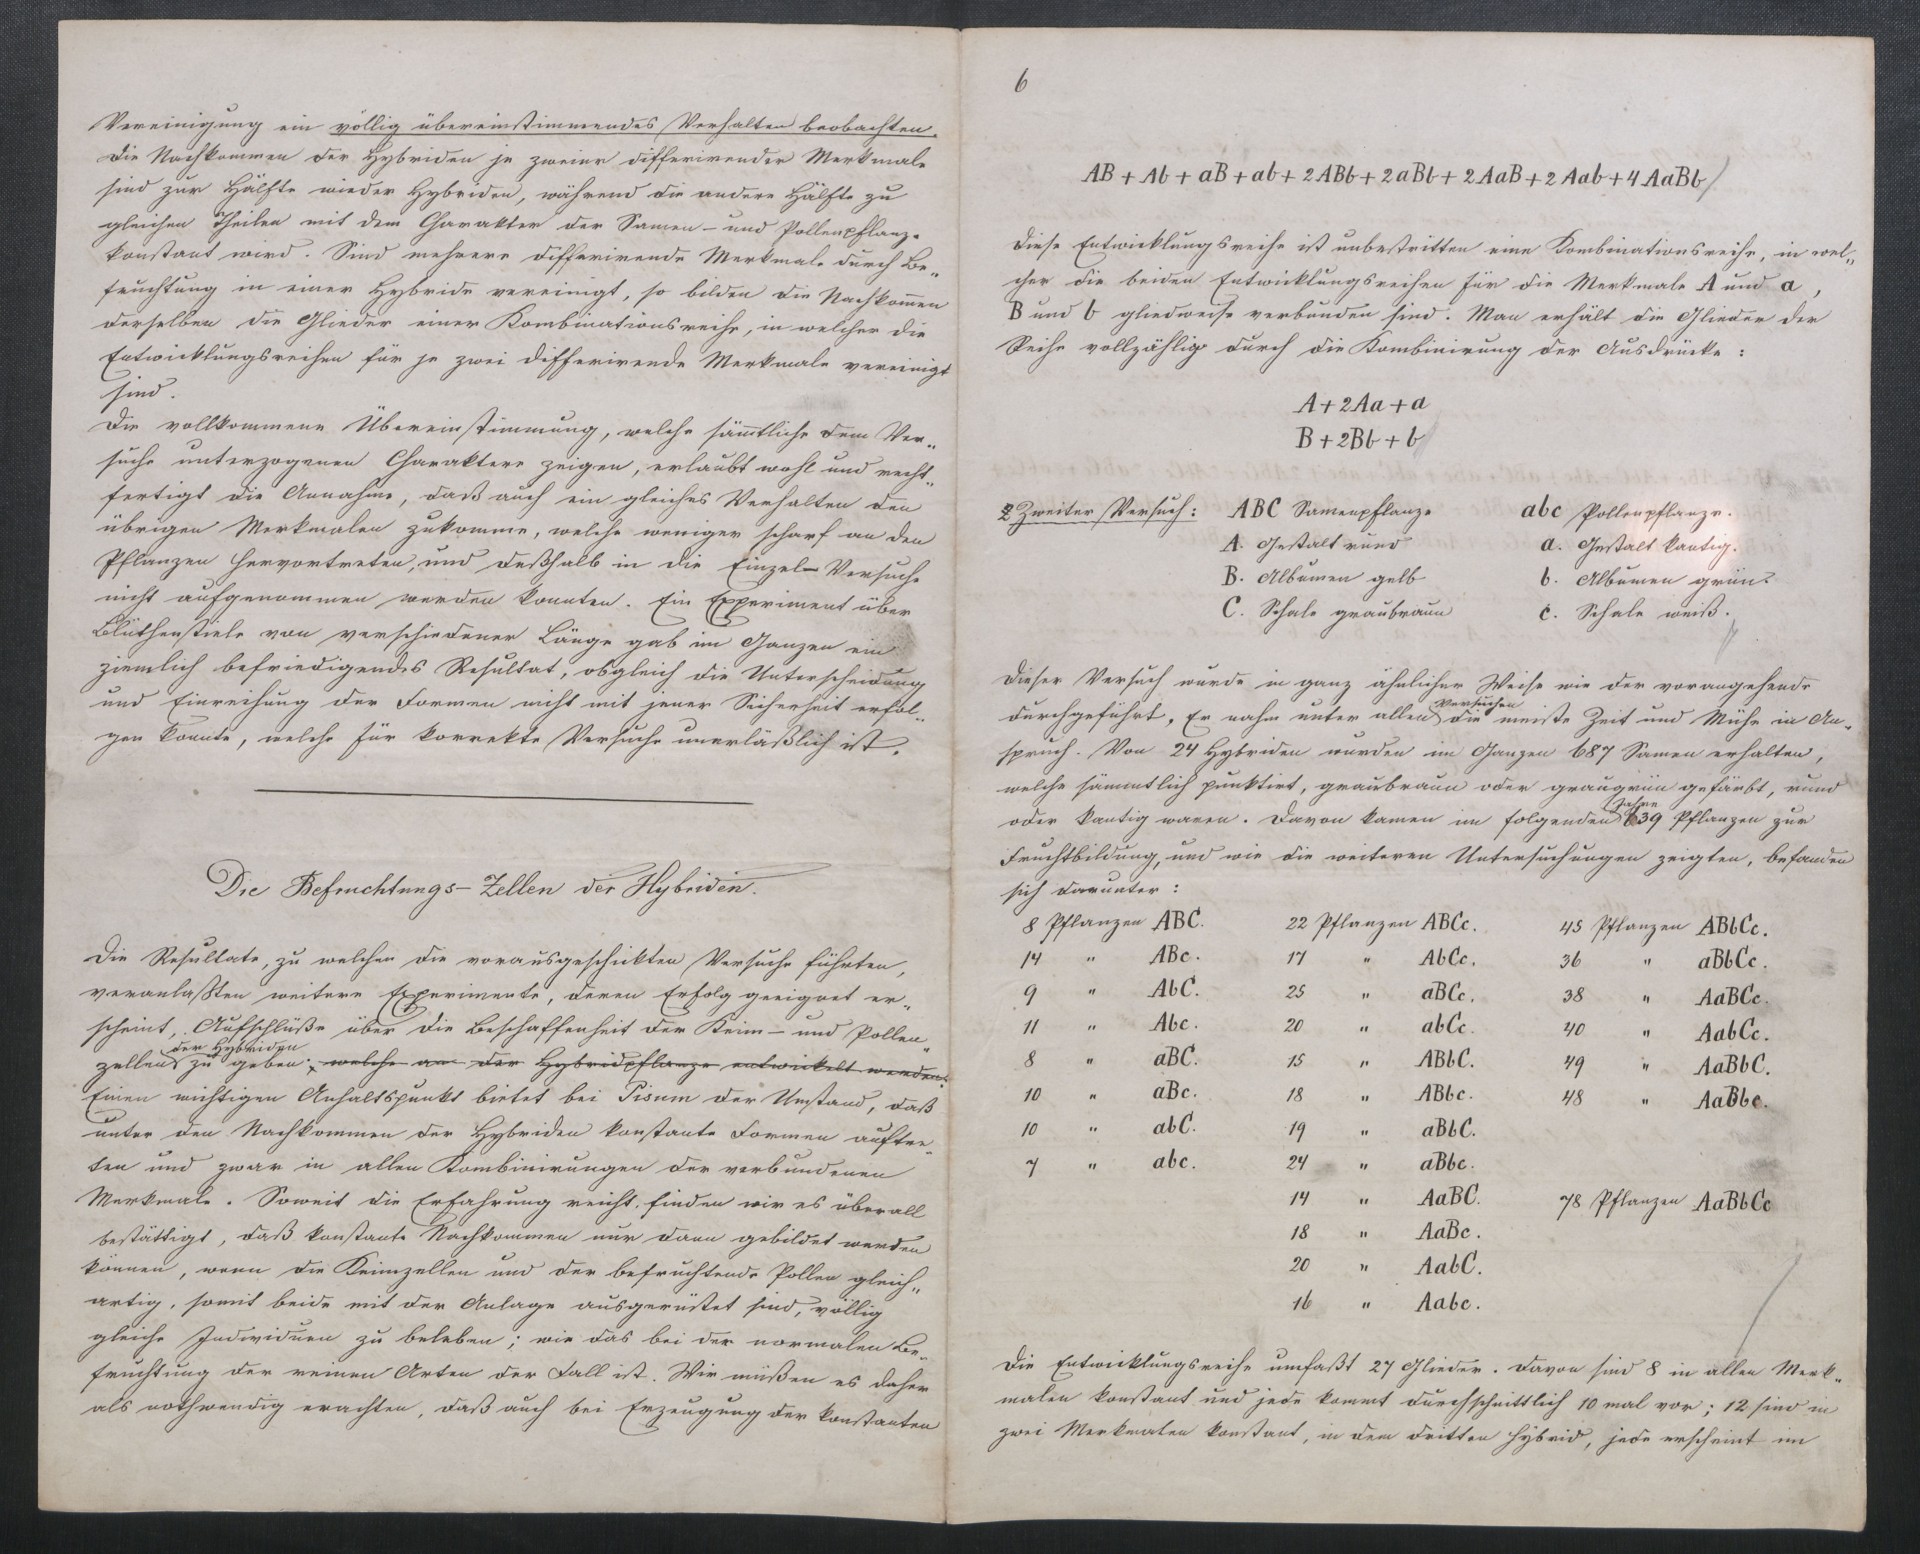 Vereinigung ein völlig übereinstimmendes Verhalten beobachten.
Die Nachkommen der Hybriden je zweier differirender Merkmale
sind zur Hälfte wieder Hybriden, während die andere Hälfte zu
gleichen Theilen mit dem Charakter der Samen- und Pollenpflanze
konstant wird. Sind mehrere differirende Merkmale durch Be„
fruchtung in einer Hybride vereinigt, so bilden die Nachkom̅en
derselben die Glieder einer Kombinationsreihe, in welcher die
Entwicklungsreihen für je zwei differirende Merkmale vereinigt
sind.
Die vollkommene Übereinstimmung, welche säm̅tliche dem Ver„
suche unterzogenen Charaktere zeigen, erlaubt wohl und recht„
fertigt die Annahme, daß auch ein gleiches Verhalten den
übrigen Merkmalen zukomme, welche weniger scharf an den
Pflanzen hervortreten, und deßhalb in die Einzel-Versuche
nicht aufgenommen werden konnten. Ein Experiment über
Blüthenstiele von verschiedener Länge gab im Ganzen ein
ziemlich befriedigendes Resultat, obgleich die Unterscheidung
und Einreihung der Formen nicht mit jener Sicherheit erfol„
gen konnte, welche für korrekte Versuche unerläßlich ist.
Die Befruchtungs-Zellen der Hybriden.
Die Resultate, zu welchen die vorausgeschickten Versuche führten,
veranlaßten weitere Experimente, deren Erfolg geeignet er„
scheint, Aufschlüße über die Beschaffenheit der Keim- und Pollen„
der Hybriden
zellen zu geben, welche an der Hybridpflanze entwickelt werden.
Einen wichtigen Anhaltspunkt bietet bei Pisum der Umstand, daß
unter den Nachkommen der Hybriden konstante Formen auftre„
ten und zwar in allen Kombinirungen der verbundenen
Merkmale. Soweit die Erfahrung reicht, finden wir es überall
bestättigt, daß konstante Nachkommen nur dann gebildet werden
können, wenn die Keimzellen und der befruchtende Pollen gleich„
artig, somit beide mit der Anlage ausgerüstet sind, völlig
gleiche Individuen zu beleben; wie das bei der normalen Be„
fruchtung der reinen Arten der Fall ist. Wir müßen es daher
als nothwendig erachten, daß auch bei Erzeugung der konstanten
6
AB + Ab + aB + ab + 2ABb + 2aBb + 2AaB + 2Aab + 4AaBb
Diese Entwicklungsreihe ist unbestritten eine Kombinationsreihe, in wel„
cher die beiden Entwicklungsreihen für die Merkmale A und a,
B und b gliedweise verbunden sind. Man erhält die Glieder der
Reihe vollzählig durch die Kombinirung der Ausdrücke:
A + 2Aa + a
B + 2Bb + b
2 Zweiter Versuch: ABC Samenpflanze abc Pollenpflanze.
A. Gestalt rund a. Gestalt kantig.
B. Albumen gelb b. Albumen grün.
C. Schale graubraun c. Schale weiß.
Dieser Versuch wurde in ganz ähnlicher Weise wie der vorangehende
Versuchen
durchgeführt. Er nahm unter allen die meiste Zeit und Mühe in An„
spruch. Von 24 Hybriden wurden im Ganzen 687 Samen erhalten,
welche sämmtlich punktirt, graubraun oder graugrün gefärbt, rund
Jahre
oder kantig waren. Davon kamen im folgenden 639 Pflanzen zur
Fruchtbildung, und wie die weiteren Untersuchungen zeigten, befanden
sich darunter:
8 Pflanzen ABC. 22 Pflanzen ABCc. 45 Pflanzen ABbCc.
14 " ABc. 17 " AbCc. 36 " aBbCc.
9 " AbC. 25 " aBCc. 38 " AaBCc.
11 " Abc. 20 " abCc. 40 " AabCc.
8 " aBC. 15 " ABbC. 49 " AaBbC.
10 " aBc. 18 " ABbc. 48 " AaBbc.
10 " abC. 19 " aBbC.
7 " abc. 24 " aBbc.
14 " AaBC. 78 Pflanzen AaBbCc
18 " AaBc.
20 " AabC.
16 " Aabc.
Die Entwicklungsreihe umfaßt 27 Glieder. Davon sind 8 in allen Merk„
malen konstant und jede kommt durchschnittlich 10 mal vor; 12 sind in
zwei Merkmalen konstant, in dem dritten hybrid, jede erscheint im